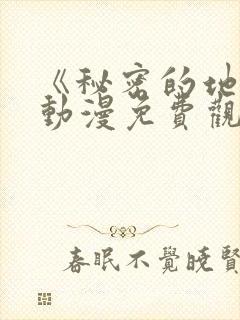 《秘密的地
動漫免費觀
春眠不覺曉賢